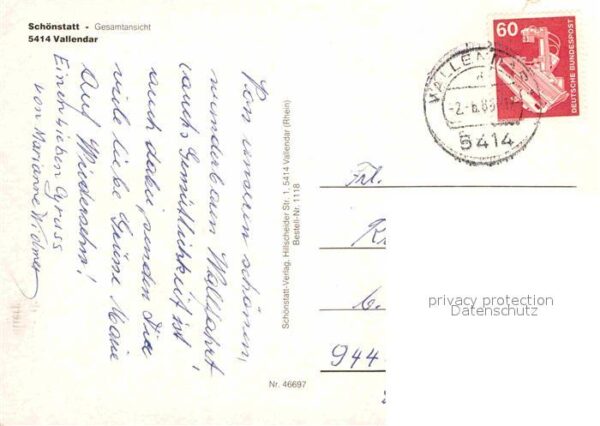 Schönstatt - Gesamtansicht
5414 Vallendar
Von unseren schönen,
wunderbaren Wallfahrt
(auch Gemütlichkeit ist
auch dabei, senden Dir
viele liebe Grüsse Marie
Auf Wiedersehn!
Einen lieben Gruss
von Marianne Widmer
Schönstatt-Verlag, Hillscheider Str. 1, 5414 Vallendar (Rhein)
Bestell-Nr. 1118
Nr. 46697
60
DEUTSCHE BUNDESPOST
VALLENDAR
-2.-6.88
5414
Frl.
944
privacy protection
Datenschutz